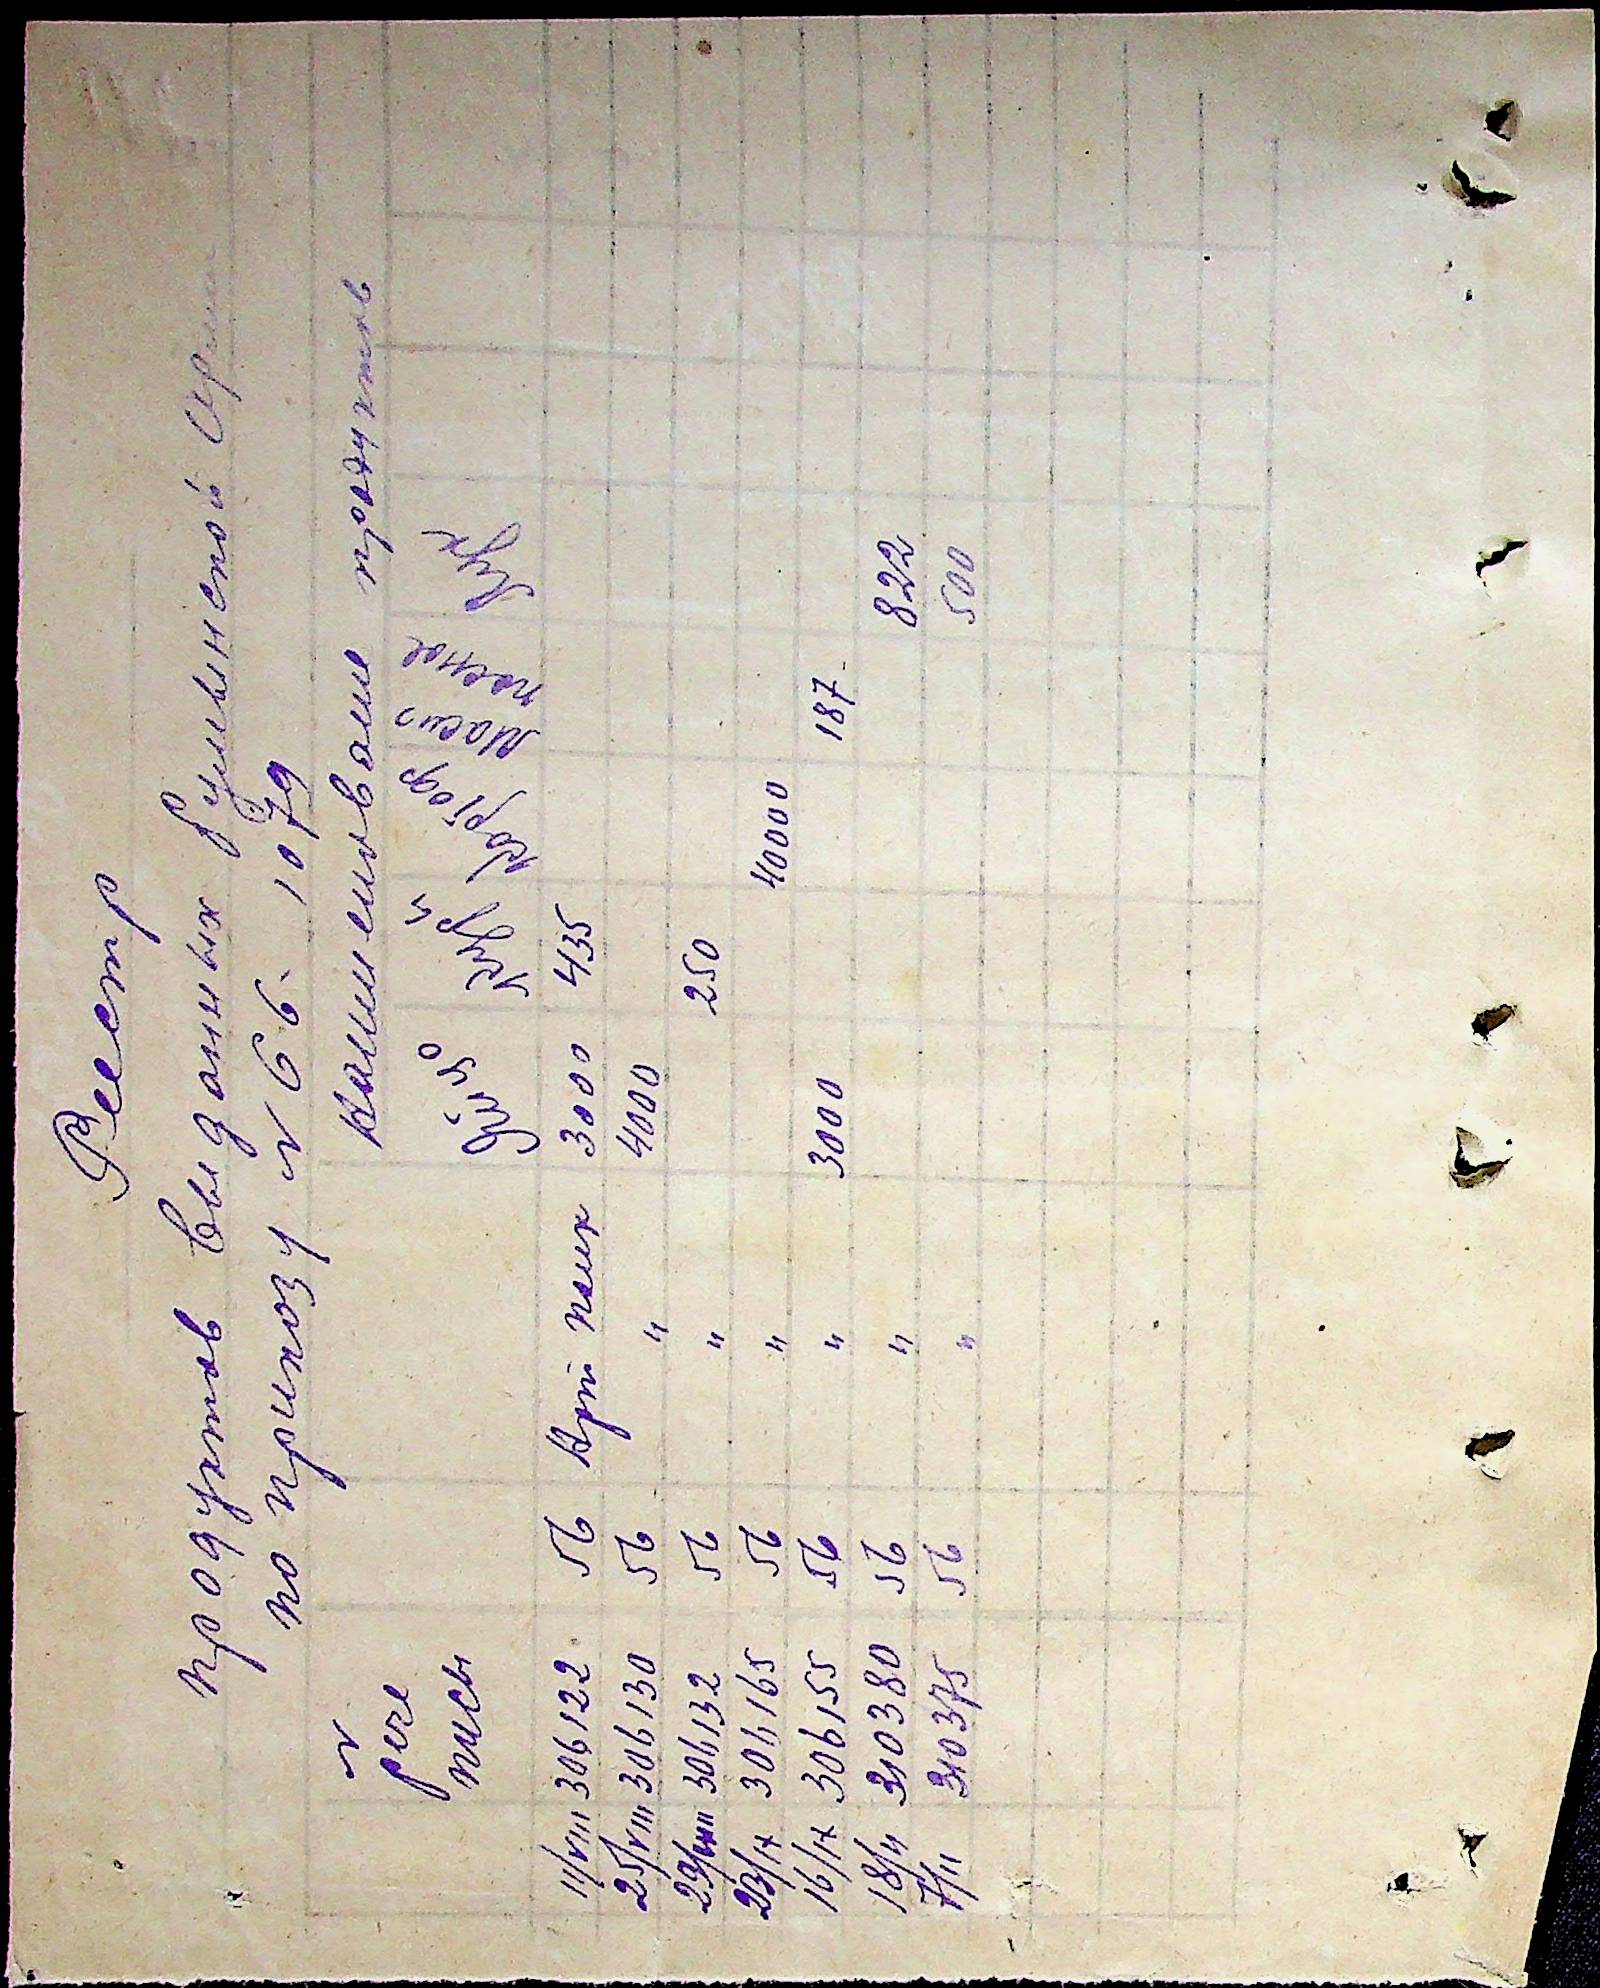 Реестр
продуктов выданных румынской Армии
по приказу N 66. 1079
N
рас
писы
Наименование продуктов
Яйцо Куры Картоф Масло постное Лук
11/VIII 306122 56 3000 435
25/VIII 306130 56 " 4000
29/VIII 306132 56 " 250
23/IX 306165 56 " 40000
16/IX 306155 56 " 3000 187
18/11 310380 56 " 822
7/11 310375 56 " 500